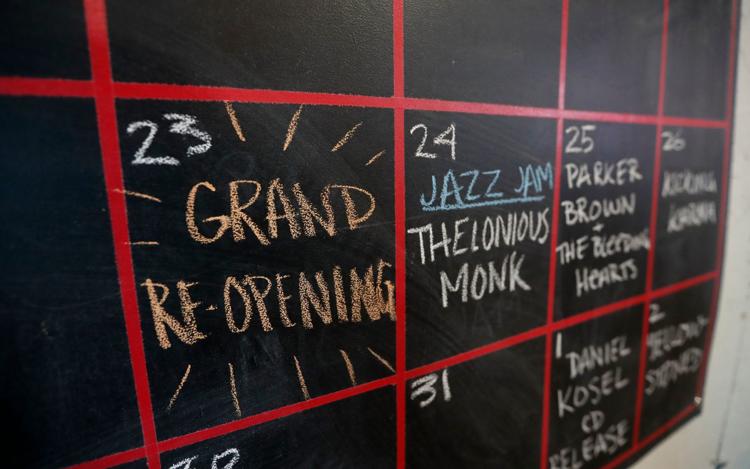 23
GRAND
RE-OPENING
24
JAZZ JAM
THELONIOUS
MONK
25
PARKER
BROWN
+
THE BLEEDING
HEARTS
26
KARMA
31
1
DANIEL
KOSEL
CD
RELEASE
2